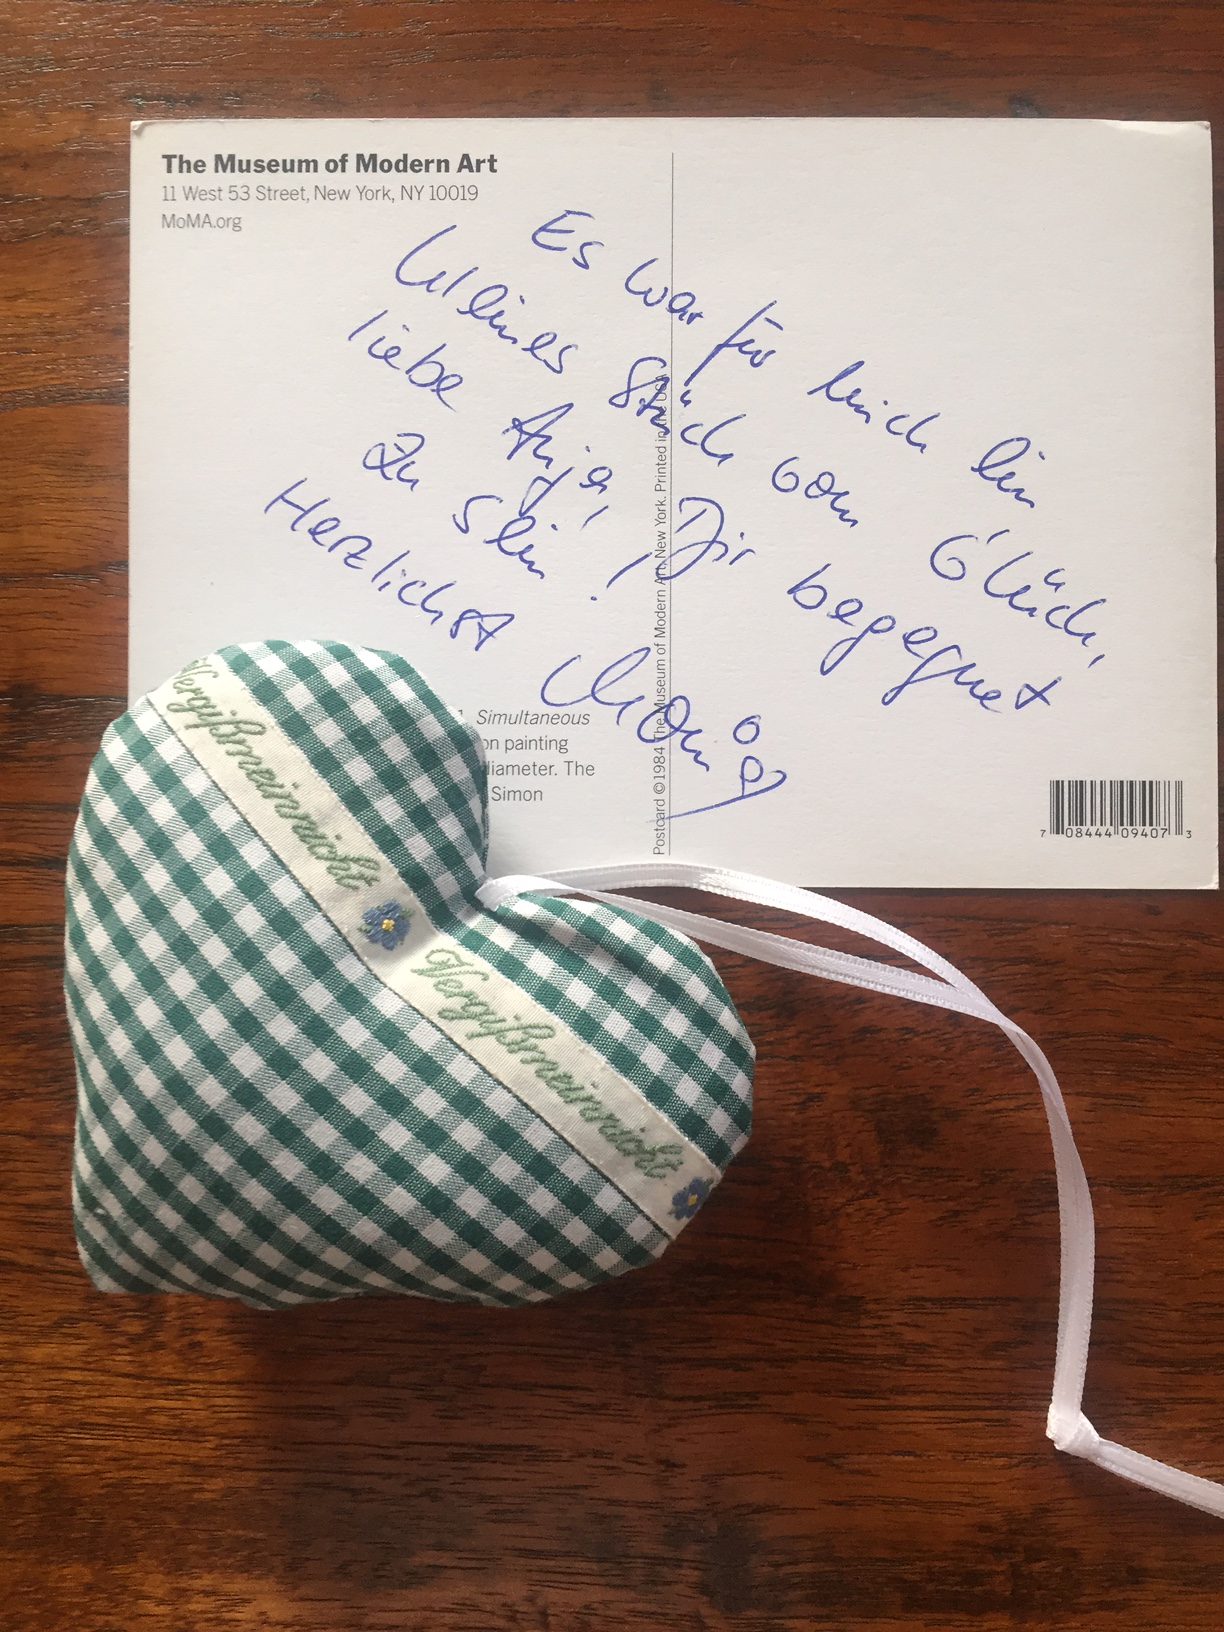 The Museum of Modern Art
11 West 53 Street, New York, NY 10019
MoMA.org
Es war für mich ein
kleines Stück vom Glück,
liebe Anja, Dir begegnet
zu sein!
Herzlichst
Simultaneous
on painting
diameter. The
Simon
Postcard ©1984 The Museum of Modern Art, New York. Printed in the USA
7 08444 09407 3
Vergißmeinnicht
Vergißmeinnicht